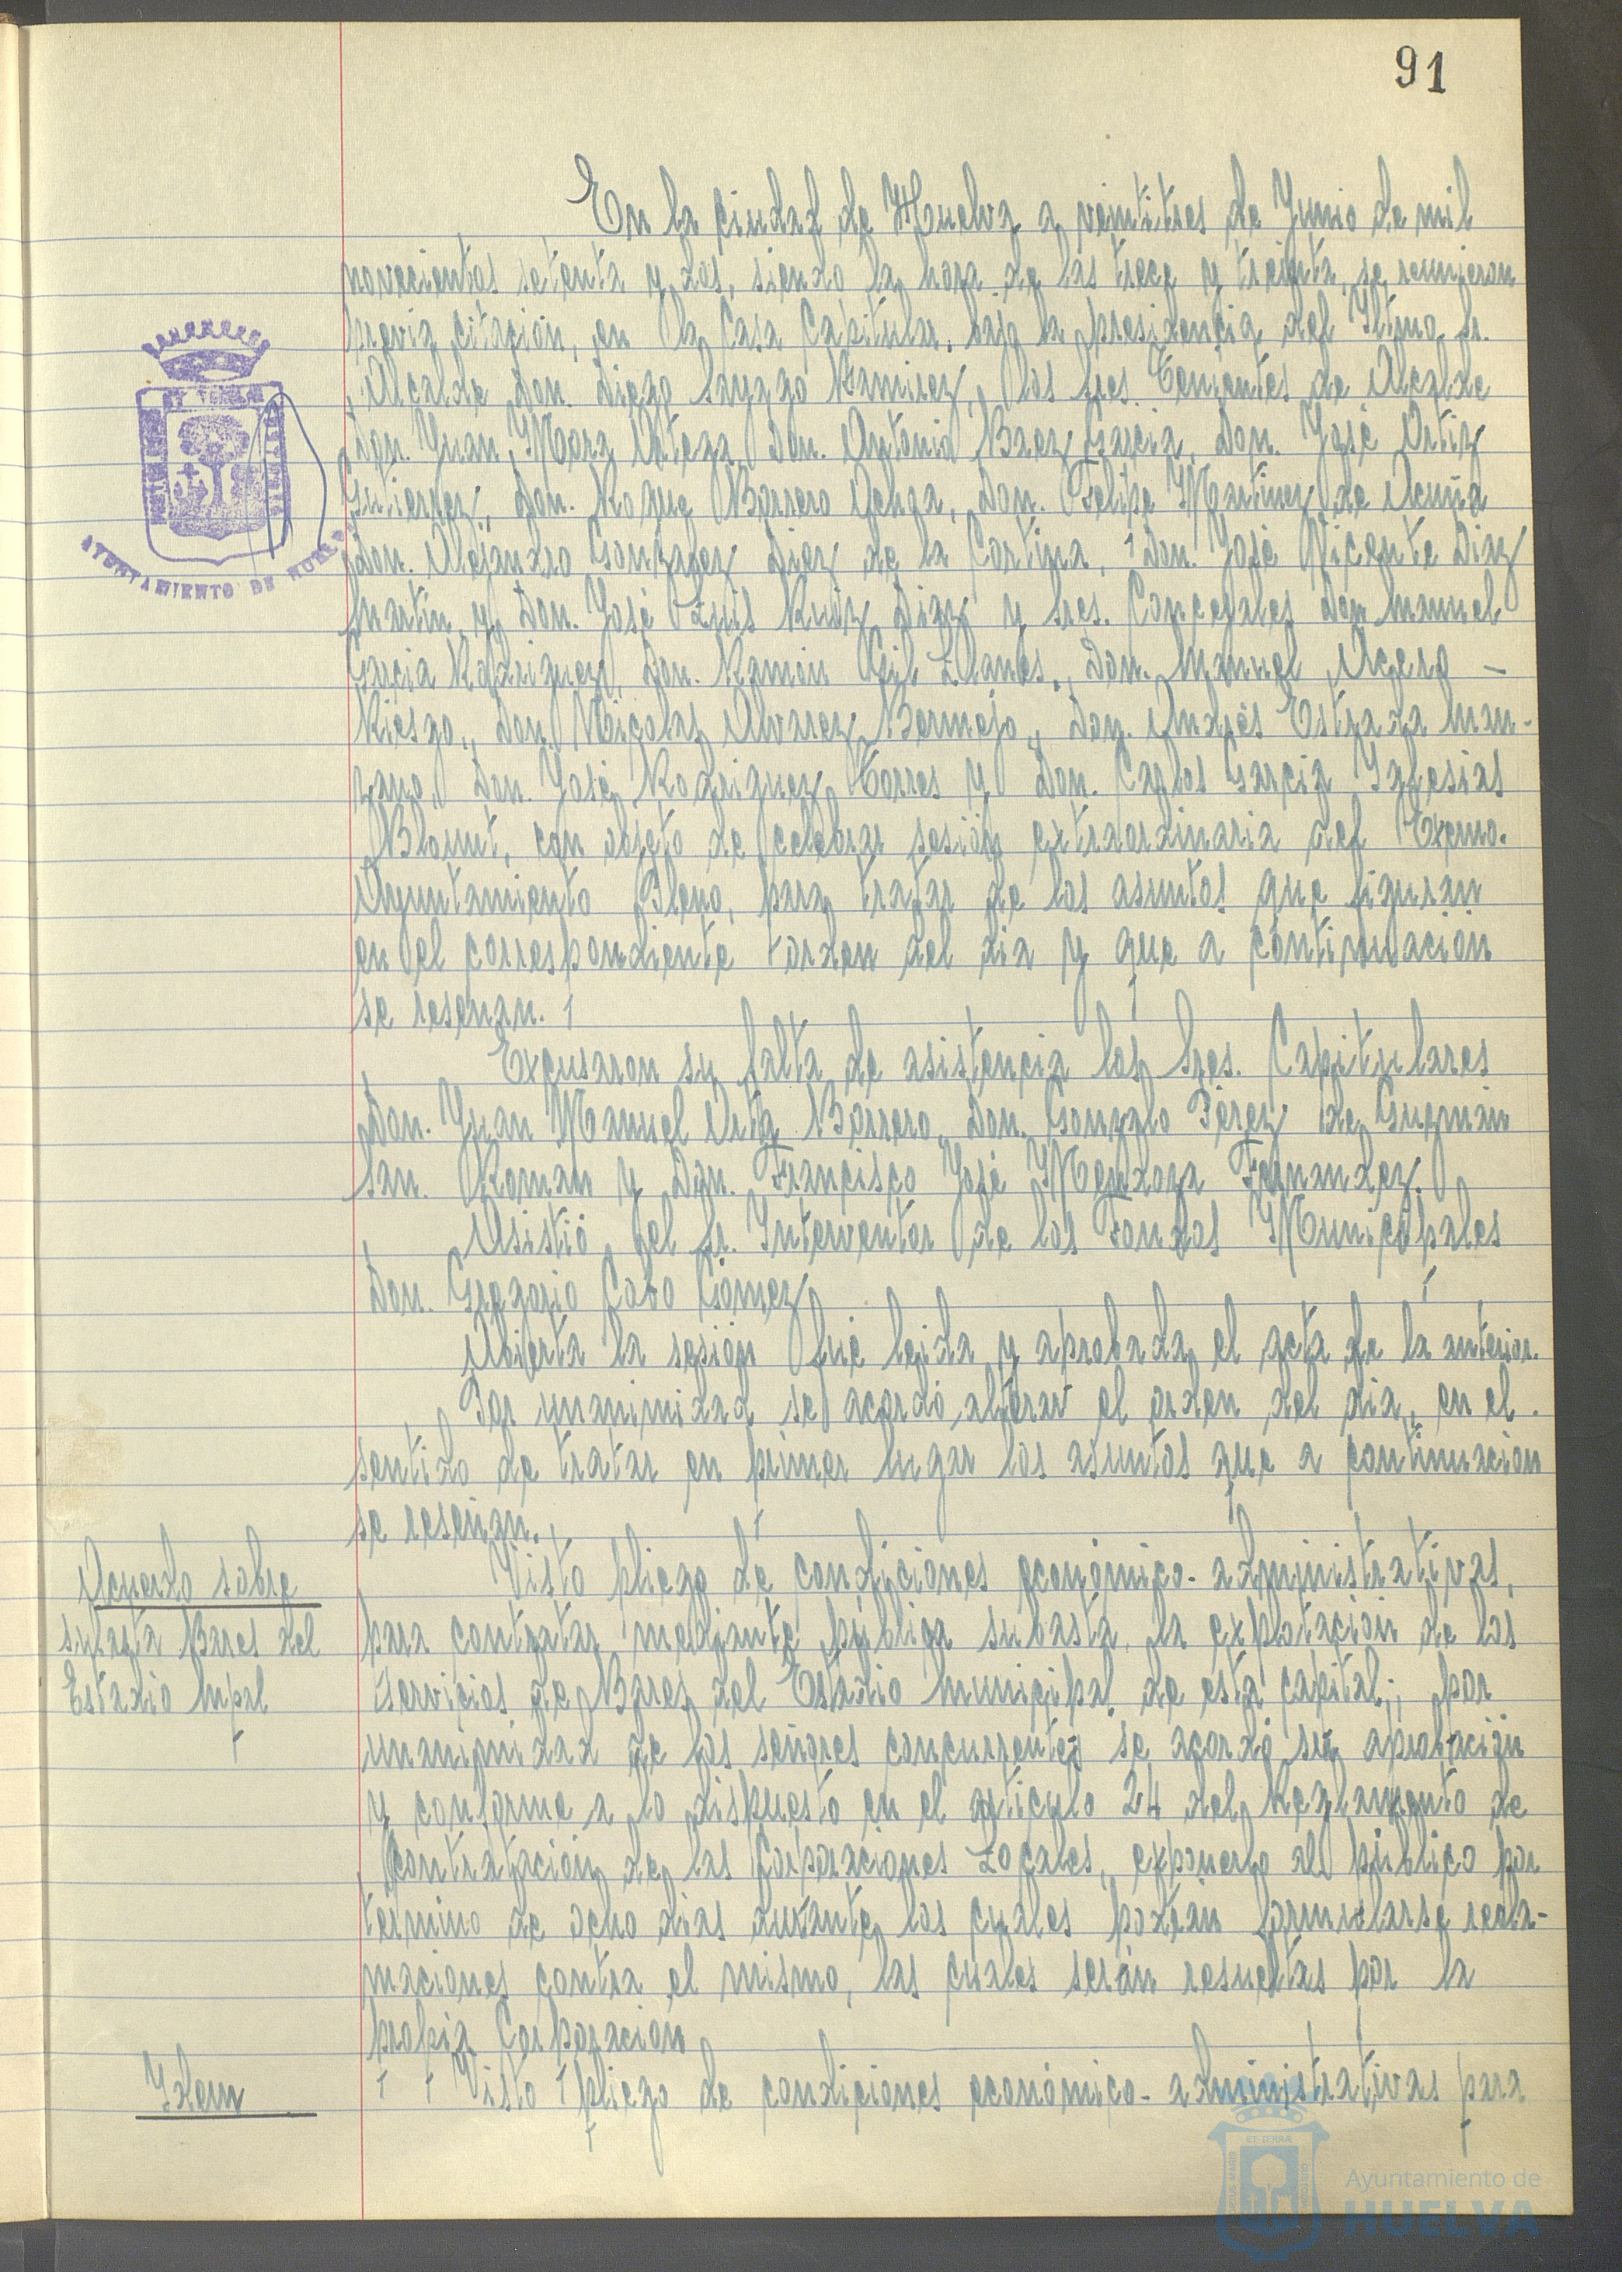 91
En la ciudad de Huelva a veintitres de Junio de mil
novecientos setenta y dos, siendo la hora de las trece y treinta, se reunieron
previa citación, en la Casa Capitular, bajo la presidencia del Iltmo. Sr.
Alcalde Don. Diego Sayago Ramirez, los Sres. Tenientes de Alcalde
Don. Juan Mora Ortega, Don. Antonio Baez Garcia, Don. José Ortiz
Gutierrez, Don. Roque Barrero Ochoa, Don. Felipe Martinez de Acuña
Don. Alejandro Gonzalez Diez de la Cortina, Don. José Vicente Diaz
Martin y Don. José Luis Ruiz Diaz y Sres. Concejales Don Manuel
Garcia Rodriguez, Don. Ramón Gil Llanes, Don. Manuel Acero -
Riesgo, Don. Nicolas Alvarez Bermejo, Don. Andrés Estrada Man-
zano, Don. José Rodriguez Torres y Don. Carlos Garcia Iglesias
Blount, con objeto de celebrar sesión extraordinaria del Excmo.
Ayuntamiento Pleno, para tratar de los asuntos que figuran
en el correspondiente orden del dia y que a continuación
se reseñan.
Excusaron su falta de asistencia los Sres. Capitulares
Don. Juan Manuel Orta Barrero, Don. Gonzalo Pérez de Guzmán
San. Roman y Don. Francisco José Mendoza Fernandez.
Asistió el Sr. Interventor de los Fondos Municipales
Don. Gregorio Cabo Gómez
Abierta la sesión fué leida y aprobada el acta de la anterior.
Por unanimidad se acordó alterar el orden del dia, en el
sentido de tratar en primer lugar los asuntos que a continuación
se reseñan.
Acuerdo sobre
subasta Bares del
Estadio Mpal
Visto pliego de condiciones económico-administrativas,
para contratar mediante pública subasta, la explotación de los
servicios de Bares del Estadio Municipal de esta capital; por
unanimidad de los señores concurrentes se acordó su aprobación
y conforme a lo dispuesto en el articulo 24 del Reglamento de
Contratación de las Corporaciones Locales, exponerlo al público por
termino de ocho dias durante los cuales podrán formularse recla-
maciones contra el mismo, las cuales serán resueltas por la
propia Corporación
Idem
Visto pliego de condiciones económico-administrativas para
AYUNTAMIENTO DE HUELVA
Ayuntamiento de
HUELVA